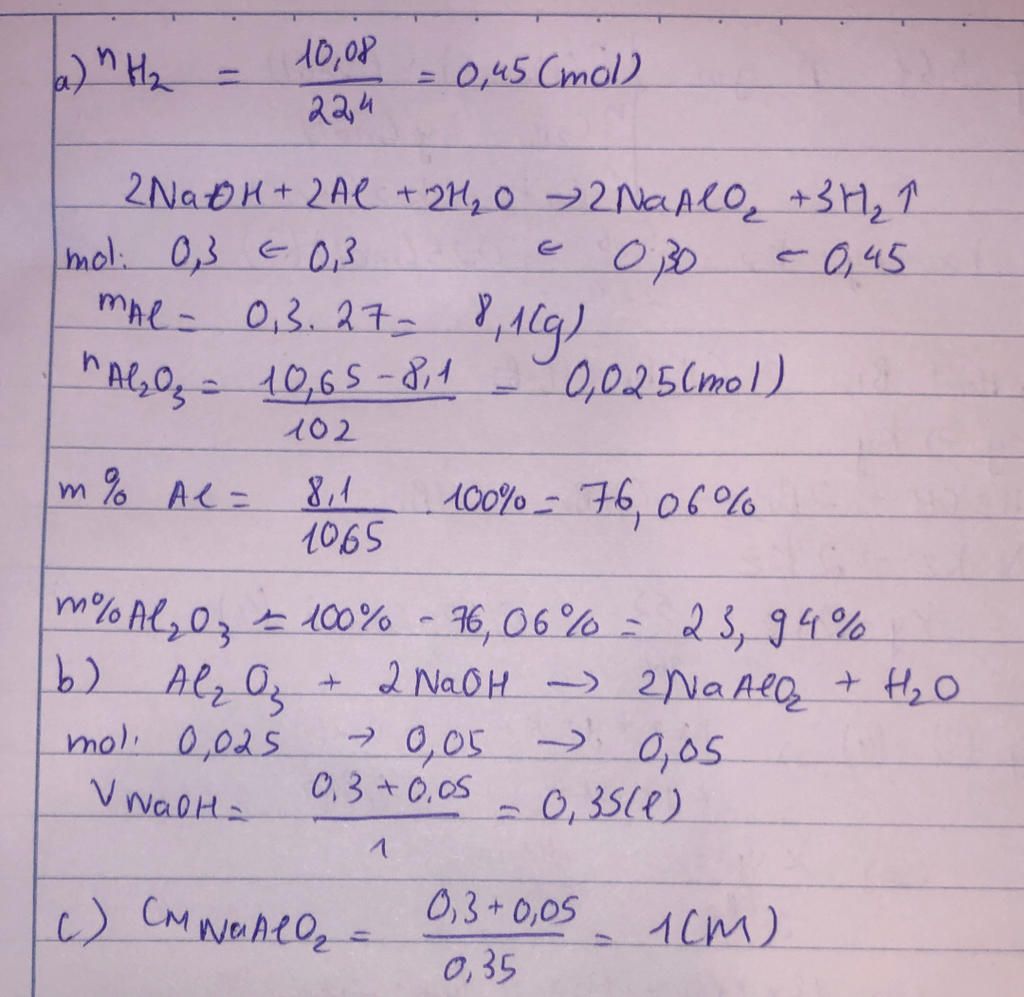 a) nH₂ = 10,08/22,4 = 0,45 (mol)
2NaOH + 2Al + 2H₂O → 2NaAlO₂ + 3H₂↑
mol: 0,3 ← 0,3 ← 0,30 ← 0,45
mAl = 0,3 . 27 = 8,1(g)
nAl₂O₃ = 10,65 - 8,1/102 = 0,025(mol)
m% Al = 8,1/10,65 . 100% = 76,06%
m% Al₂O₃ = 100% - 76,06% = 23,94%
b) Al₂O₃ + 2NaOH → 2NaAlO₂ + H₂O
mol: 0,025 → 0,05 → 0,05
VNaOH = 0,3 + 0,05/1 = 0,35(l)
c) CM NaAlO₂ = 0,3 + 0,05/0,35 = 1(M)